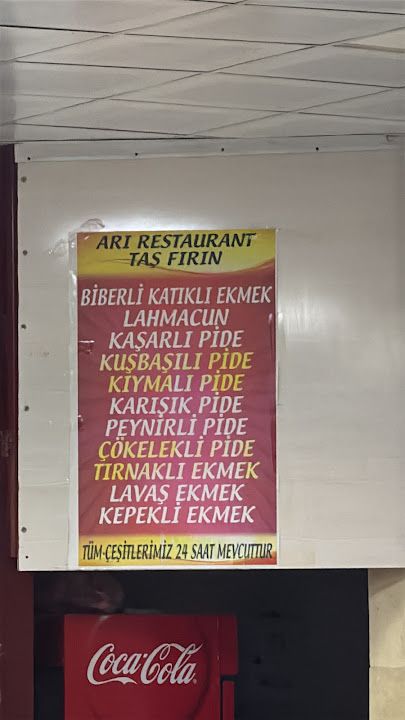 ARI RESTAURANT
TAŞ FIRIN
BİBERLİ KATIKLI EKMEK
LAHMACUN
KAŞARLI PİDE
KUŞBAŞILI PİDE
KIYMALI PİDE
KARIŞIK PİDE
PEYNİRLİ PİDE
ÇÖKELEKLİ PİDE
TIRNAKLI EKMEK
LAVAŞ EKMEK
KEPEKLİ EKMEK
TÜM-ÇEŞİTLERİMİZ 24 SAAT MEVCUTTUR
Coca-Cola